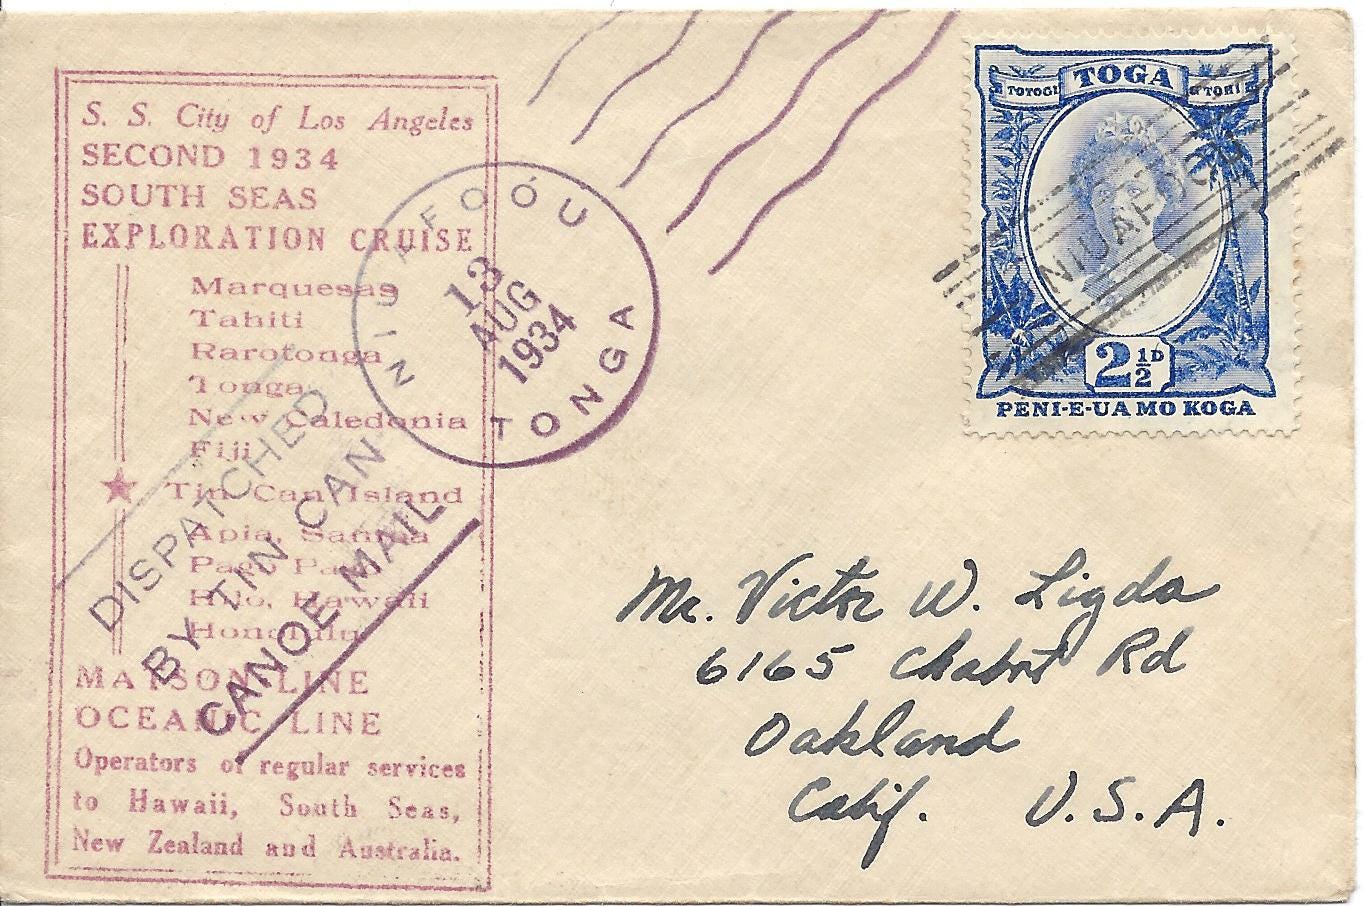 S. S. City of Los Angeles
SECOND 1934
SOUTH SEAS
EXPLORATION CRUISE
Marquesas
Tahiti
Rarotonga
Tonga
New Caledonia
Fiji
Tin Can Island
Apia, Samoa
Pago Pago
Hilo, Hawaii
Honolulu
MATSON LINE
OCEANIC LINE
Operators of regular services
to Hawaii, South Seas,
New Zealand and Australia.
DISPATCHED
BY TIN CAN
CANOE MAIL
NIUAFOÓU
13
AUG
1934
TONGA
TOGA
TOTOGI
O'TOHI
NIUAFOOU
2½D
PENI-E-UA MO KOGA
Mr. Victor W. Ligda
6165 Chabot Rd
Oakland
Calif. U.S.A.